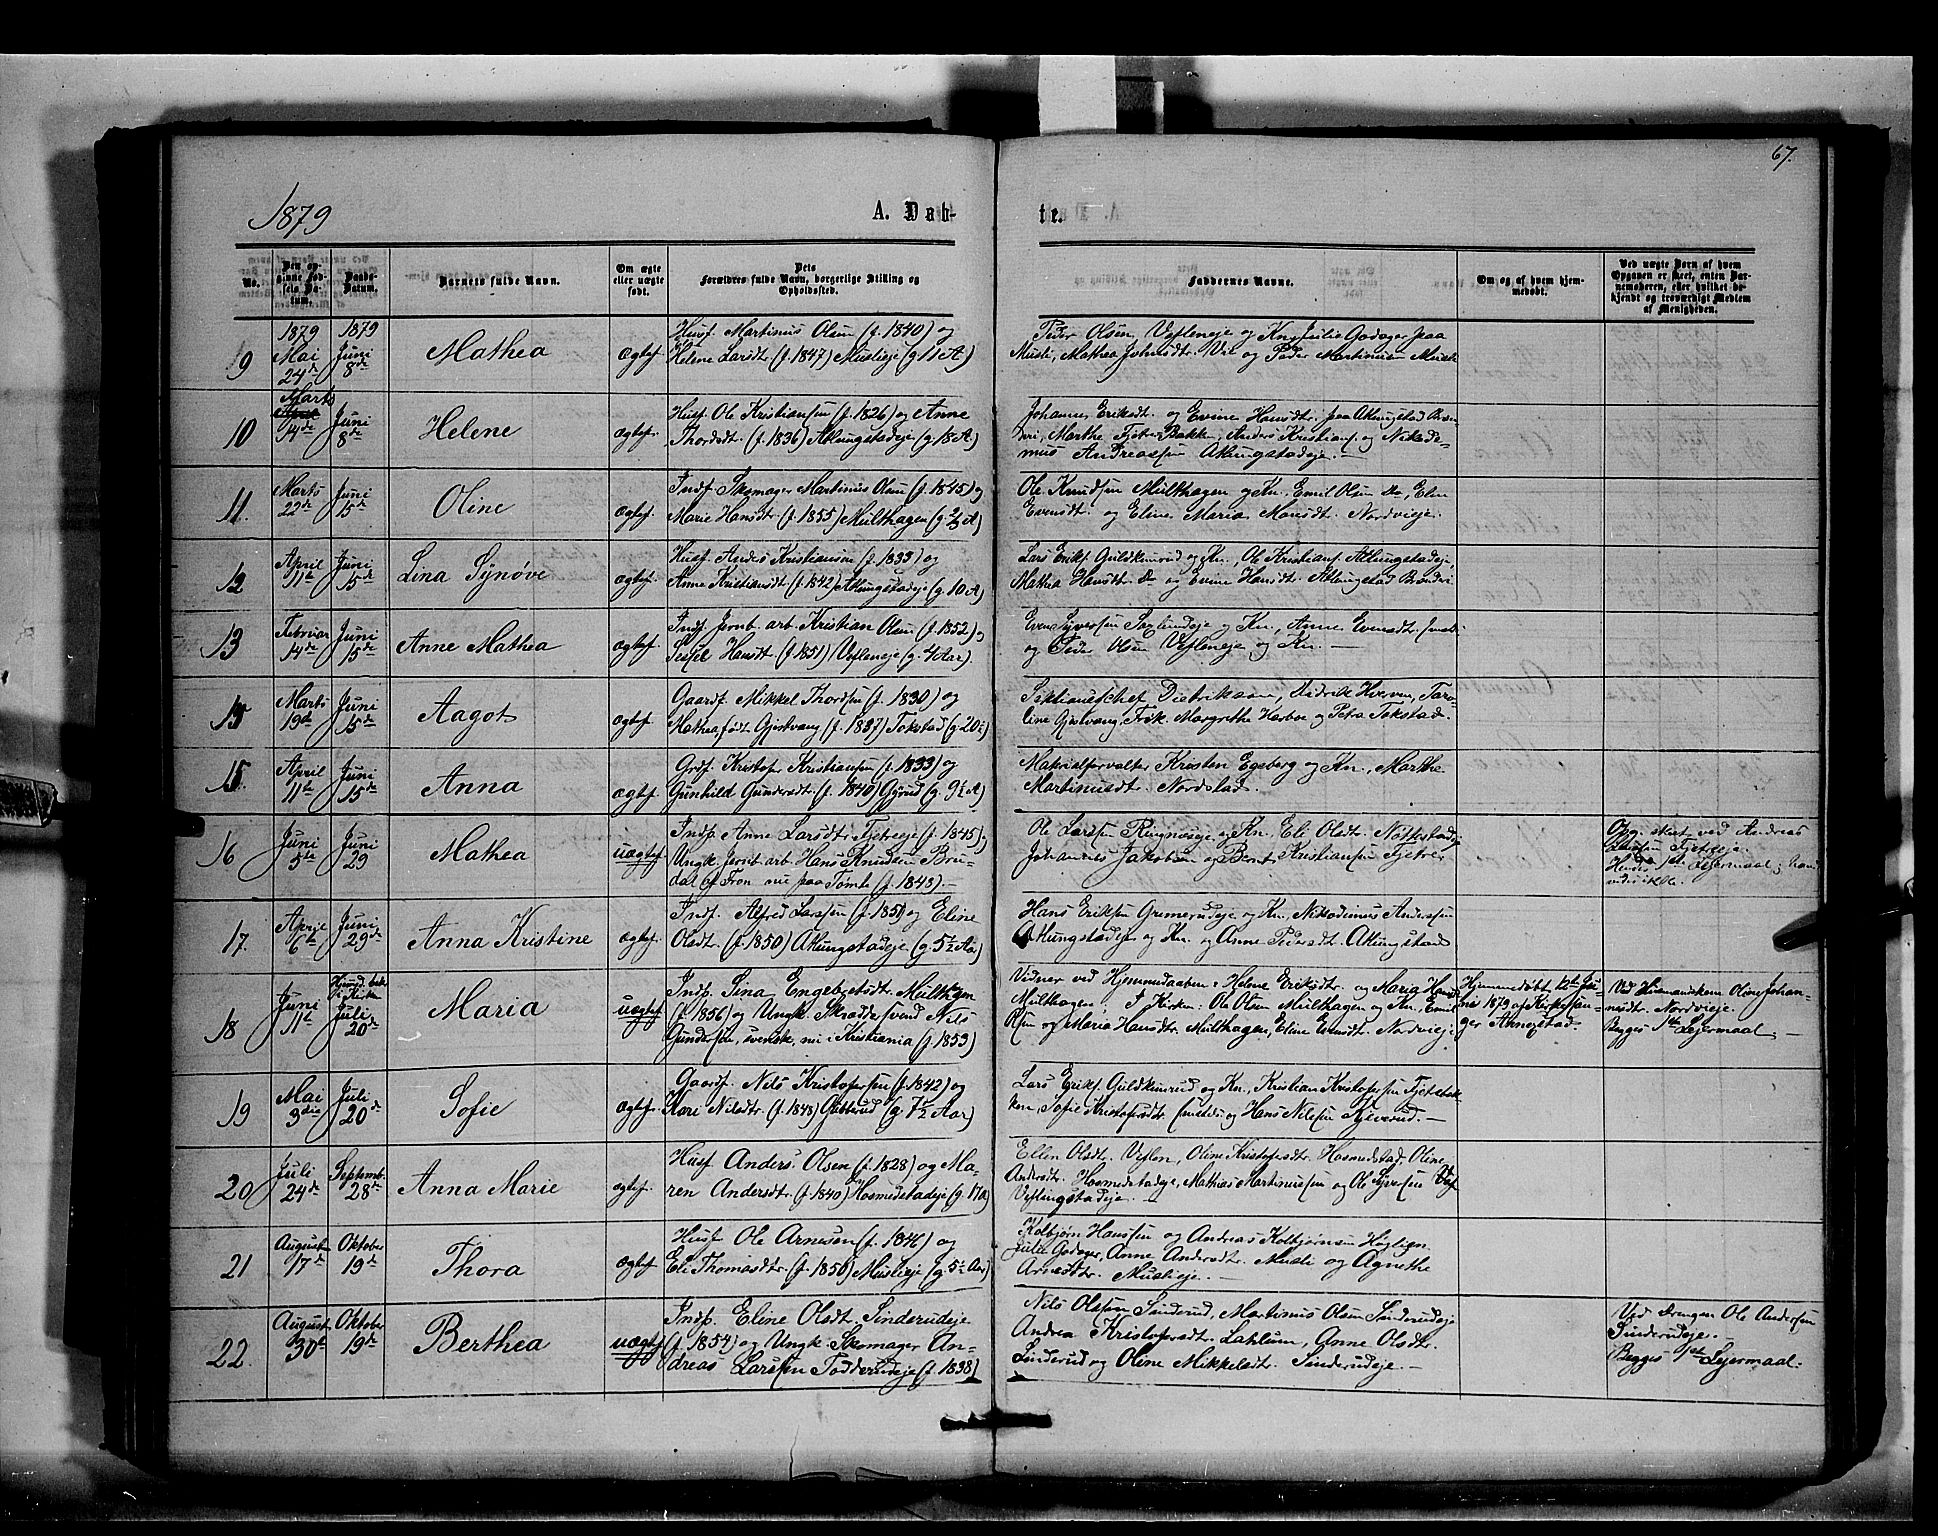 67.
1879
A. Dab-
te.
No.
Den op-
ginne Fød-
sels Da-
tum.
Daabs-
Datum.
Barnets fulde Navn.
Om ægte
eller uægte
født.
Dets
Forældres fulde Navn, borgerlige Stilling og
Opholdssted.
Faddernes Navne.
Om og af hvem hjem-
medøbt.
Ved uægte Børn af hvem
Opgaven er skeet, enten Bar-
nemoderen, eller hvilket be-
kjendt og troværdigt Medlem
af Menigheden.
9
1879
Mai
24de
1879
Juni
8de
Mathea
ægtef.
Husf. Martinus Olsen (f. 1840) og
Helene Larsdt. (f. 1847) Muslieje (g. 11 A)
Peder Olsen Vesleneje og Kn. Julie Godager paa
Musli, Mathea Johnsdt. Vil og Peder Martinusen Musli
10
Marts
14de
Juni
8de
Helene
ægtef.
Husf. Ole Kristiansen (f. 1826) og Anne
Thordsdt. (f. 1836) Atlungstadeje (g. 18 A)
Johannes Eriksdt. og Evine Hansdt. paa Atlungstad Bræn-
deri, Marthe Fjetre Bakken, Anders Kristians. og Nikode-
mus Andreassen Atlungstadeje.—
11.
Marts
22de
Juni
15de
Oline
ægtef.
Indf. Skomager Martinus Olsen (f. 1845) og
Marie Hansdt. (f. 1855) Mülthagen (g. 2/3 A)
Ole Knudsen Mülthagen og Kn. Emil Olsen do, Eline
Evensdt. og Eline Maria Hansdt. Nordvieje.
12
April
11te
Juni
15de
Lina Synøve
ægtef.
Husf. Anders Kristiansen (f. 1833) og
Anne Kristiansdt. (f. 1842) Atlungstadeje (g. 10 A)
Lars Eriks. Guldkinrud og Kn., Ole Kristians. Atlungstadeje,
Mathea Hansdt. do og Evine Hansdt. Atlungstad Brænderi
13
Februar
14de
Juni
15de
Anne Mathea
ægtef.
Indf. Jernb. arb. Kristian Olsen (f. 1852) og
Sessel Hansdt. (f. 1851) Vesleneje (g. 4 Aar).
Even Syversen Saxlundeje og Kn., Anne Evensdt.
og Peder Olsen Vesleneje og Kn.—
15
Marts
19de
Juni
15de
Aagot
ægtef.
Gaardf. Mikkel Thordsen (f. 1830) og
Mathea, født Gjestvang (f. 1837) Tokstad (g. 20½)
Sektionschef Diedrikson, Didrik Hverven, Karo-
line Gjestvang, Frøk. Margrethe Harboe og Petra Tokstad.
15.
April
11te
Juni
15de
Anna
ægtef.
Grdf. Kristofer Kristiansen (f. 1833) og
Gunhild Gundersdt. (f. 1840) Gyrud (g. 9½ A)
Materialforvalter Kristen Egeberg og Kn., Marthe
Martinusdt. Nordstad.
16
Juni
5te
Juni
29
Mathea
uægtef
Indp. Anne Larsdtr. Fjetreeje (f. 1845) og
Ungk. Jernb. arb. Hans Knudsen Bru-
dal af Fron nu paa Tomte (f. 1848).—
Ole Larsen Ringnæseje og Kn., Eli Olsdt. Nøttestadeje
Johannes Jakobsen og Bernt Kristiansen Fjetre.
Opg. skeet ved Andreas
Larsen Fjetreeje.
Hendes 1ste Lejermaal; hans
vides ikke.
17.
April
6te
Juni
29de
Anna Kristine
ægtef.
Indf. Alfred Larssen (f. 1851) og Eline
Olsdt. (f. 1850) Atlungstadeje (g. 5½ Aar)
Hans Eriksen Grimerudeje og Kn., Nikodemus Andersen
Atlungstadeje og Kn. og Anne Pedersdt. Atlungstad
18
Juni
11te
Hjemd. bek.
i Kirken
Juli
20de
Maria
uægtef
Indp. Lina Engebretsdt. Mülthagen
(f. 1856) og Ungk. Skræddersvend Nils
Gundersen, svensk, nu i Kristiania (f. 1853)
Vidner ved Hjemmedaaben: Helene Eriksdt. og Maria Hansdt.
Mülthagen; I Kirken: Ole Olsen Mülthagen og Kn. Emil
Olsen og Maria Hansdt. Mülthagen, Eline Evensdt. Nordvieje.
Hjemmedøbt 12te Ju-
ni 1879 af Kirkesan-
ger Arnestad.
Ved Husmandskone Oline Johan-
nesdt. Nordvieje.
Begges 1ste Lejermaal.—
19
Mai
3die
Juli
20de
Sofie
ægtef.
Gaardf. Nils Kristofersen (f. 1842) og
Kari Nilsdtr. (f. 1848) Gubberud (g. 7½ Aar)
Lars Eriks. Guldkinrud og Kn., Kristian Kristofersen Fjetrebak-
ken, Sofie Kristofersdt. og Hans Nilsen Kjeverud.—
20
Juli
24de
Septemb.
28de
Anna Marie
ægtef.
Husf. Anders Olsen (f. 1828) og Ma-
ren Andersdt. (f. 1840) Hosmedstadeje (g. 17 A)
Ellen Olsdt. Veslen, Oline Kristofersdt. Hosmedstad, Oline
Andersdt. Hosmedstadeje, Mathias Martinussen og Ole Syversen
Veslingstadeje.—
21
August
17de
Oktober
19de
Thora
ægtef.
Husf. Ole Arnesen (f. 1846) og
Eli Thomasdtr. (f. 1850) Muslieje (g. 5½ Aar)
Kolbjørn Hanssen og Andreas Kolbjørnsen Høglien
Julie Godager, Anne Andersdt. Musli og Agnethe
Arnesdtr. Muslieje.—
22.
August
30te
Oktober
19de
Berthea
uægtef
Indp. Eline Olsdt. Sinderudeje
(f. 1854) og Ungk. Skomager An-
dreas Larssen Fodderudeje (f. 1838)
Nils Olssen Sinderud, Martinus Olsen Sinderudeje
Andrea Kristofersdt. Lahlum, Anne Olsdt.
Sinderud og Oline Mikkelsdt. Sinderudeje.—
Ved Drengen Ole Andersen
Sinderudeje.—
Begges 1ste Lejermaal.